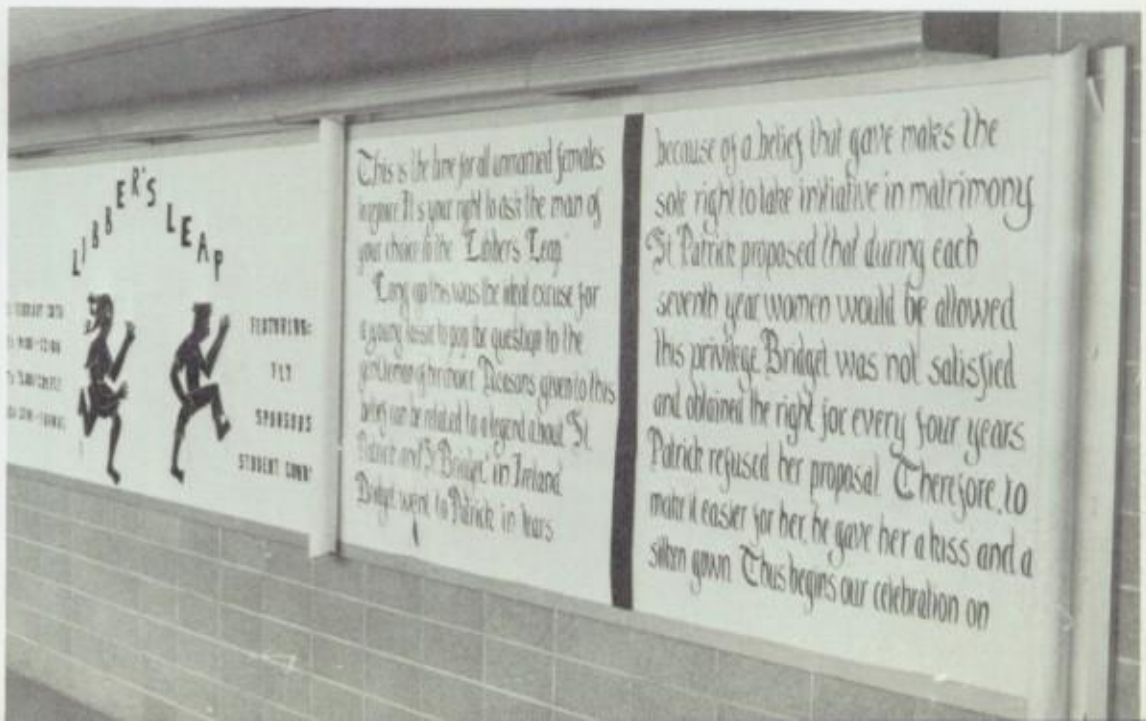 LIBBER'S LEAP
FEATURING:
FLY
SPONSORS
STUDENT
This is the time for all unmarried females
It's your right to ask the man of
your choice to the "Libber's Leap"
Long ago this was the ideal excuse for
a young lassie to pop the question to the
gentleman of her choice. Reasons given to this
belief can be related to a legend about "St.
Patrick and St. Bridget" in Ireland.
Bridget went to Patrick in tears
because of a belief that gave males the
sole right to take initiative in matrimony.
St. Patrick proposed that during each
seventh year women would be allowed
this privilege. Bridget was not satisfied
and obtained the right for every four years
Patrick refused her proposal. Therefore, to
make it easier for her, he gave her a kiss and a
silken gown. Thus begins our celebration on